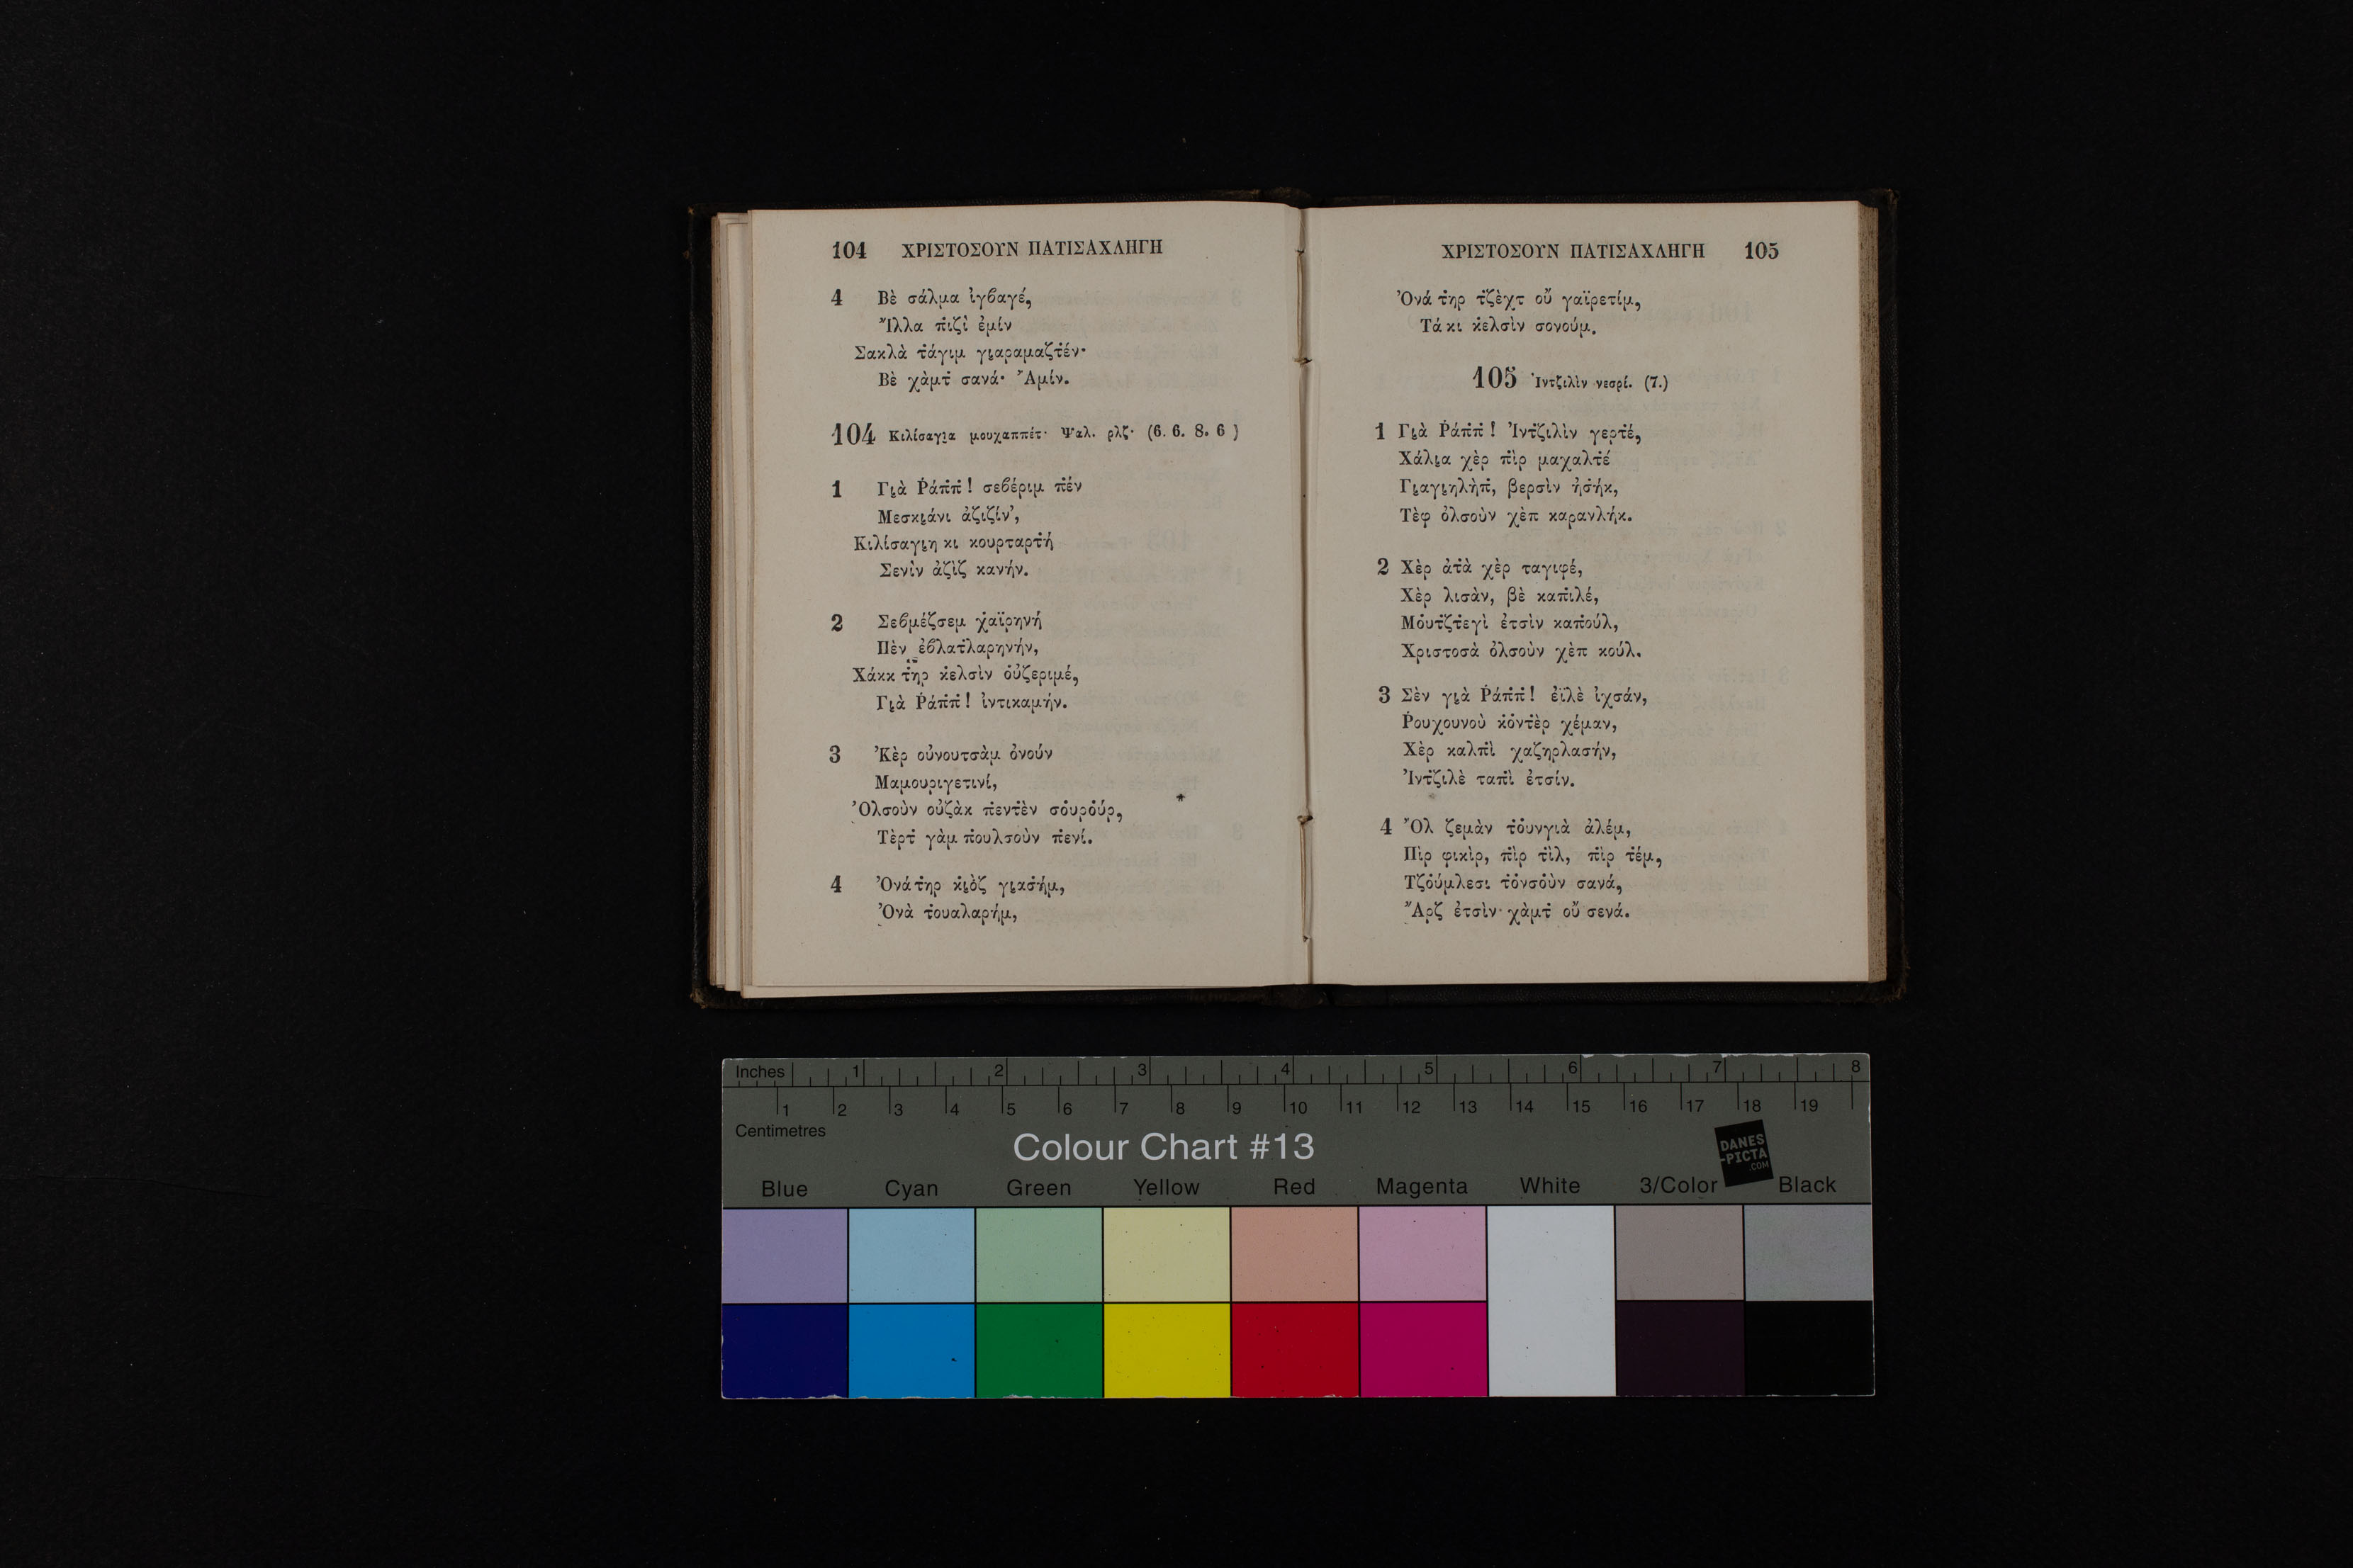 104 ΧΡΙΣΤΟΣΟΥΝ ΠΑΤΙΣΑΧΛΗΓΗ
4 Βὲ σάλμα ἰγϐαγέ,
Ἴλλα π̇ιζὶ ἐμίν
Σακλὰ τ̇άγιμ γι̰αραμαζτ̇έν·
Βὲ χὰμτ̇ σανά· Ἀμίν.
104 Κιλίσαγι̰α μουχαππέτ· Ψαλ. ρλζ· (6. 6. 8. 6 )
1 Γι̰ὰ Ῥάπ̇π̇! σεϐέριμ π̇έν
Μεσκι̰άνι ἀζιζίν',
Κιλίσαγι̰η κι κουρταρτ̇ή
Σενὶν ἀζὶζ κανήν.
2 Σεϐμέζσεμ χαϊρηνή
Πὲν ἐϐλατ̇λαρηνήν,
Χάκκ τ̇ηρ κ̇ελσὶν οὐ̇ζεριμέ,
Γι̰ὰ Ῥάπ̇π̇! ἰντικαμήν.
3 Ἐκὲρ οὐνουτσὰμ ὀνούν
Μαμουριγετινί,
Ὀλσοὺν οὐζὰκ π̇εντ̇ὲν σὀυρὀύρ,
Τὲρτ̇ γὰμ π̇ουλσοὺν π̇ενί.
4 Ὀνά τ̇ηρ κ̇ι̰ὸζ γι̰ασ̇ήμ,
Ὀνὰ τ̇ουαλαρήμ,
ΧΡΙΣΤΟΣΟΥΝ ΠΑΤΙΣΑΧΛΗΓΗ 105
Ὀνά τ̇ηρ τ̇ζὲχτ οὖ γαϊρετίμ,
Τά κι κ̇ελσὶν σονούμ.
105 Ἰντζιλὶν νεσρί. (7.)
1 Γι̰ὰ Ῥάπ̇π̇! Ἰντ̇ζιλὶν γερτ̇έ,
Χάλι̰α χὲρ π̇ὶρ μαχαλτ̇έ
Γι̰αγι̰ηλὴπ̇, βερσὶν ἠσ̇ήκ,
Τὲφ ὀλσοὺν χὲπ καρανλήκ.
2 Χὲρ ἀτ̇ὰ χὲρ ταγιφέ,
Χὲρ λισὰν, βὲ καπ̇ιλέ,
Μὀυτ̇ζτεγὶ ἐτσὶν καπ̇ούλ,
Χριστοσὰ ὀλσοὺν χὲπ κούλ.
3 Σὲν γι̰ὰ Ῥάπ̇π̇! ἐϊλὲ ἰχσάν,
Ῥουχουνοὺ κ̇ὀντ̇ὲρ χέμαν,
Χὲρ καλπ̇ὶ χαζηρλασήν,
Ἰντ̇ζιλὲ ταπ̇ὶ ἐτσίν.
4 Ὂλ ζεμὰν τ̇ὀυνγιὰ ἀλέμ,
Πὶρ φικὶρ, π̇ὶρ τ̇ὶλ, π̇ὶρ τ̇έμ,
Τζὀύμλεσι τ̇ὀνσὀὺν σανά,
Ἂρζ ἐτσὶν· χὰμτ̇ οὖ σενά.
Inches 1 2 3 4 5 6 7 8
1 2 3 4 5 6 7 8 9 10 11 12 13 14 15 16 17 18 19
Centimetres
Colour Chart #13
DANES
-PICTA
.COM
Blue Cyan Green Yellow Red Magenta White 3/Color Black